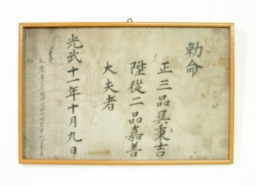 勅命
正三品吳秉吉
陞從二品嘉善
大夫者
光武十一年十月九日